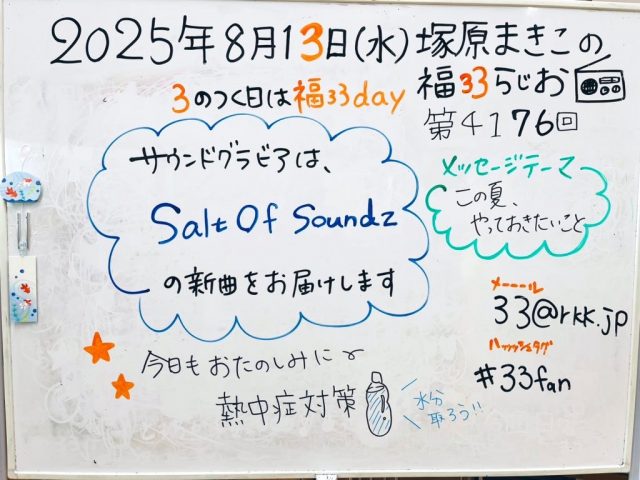 2025年8月13日(水)塚原まきこの
福33らじお
3のつく日は福33day
第4176回
サウンドグラビアは、
Salt Of Soundz
の新曲をお届けします
メッセージテーマ
この夏、
やっておきたいこと
メーール
33@rkk.jp
ハッシュタグ
#33fan
今日もおたのしみに
熱中症対策
水分
取ろう!!